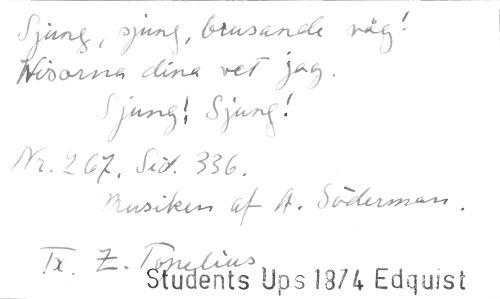 Sjung, sjung, brusande våg!
Wisorna dina vet jag.
Sjung! Sjung!
Nr. 267. Sid. 336.
Musiken af A. Söderman.
Tx. Z. Topelius
Students Ups 1874 Edquist